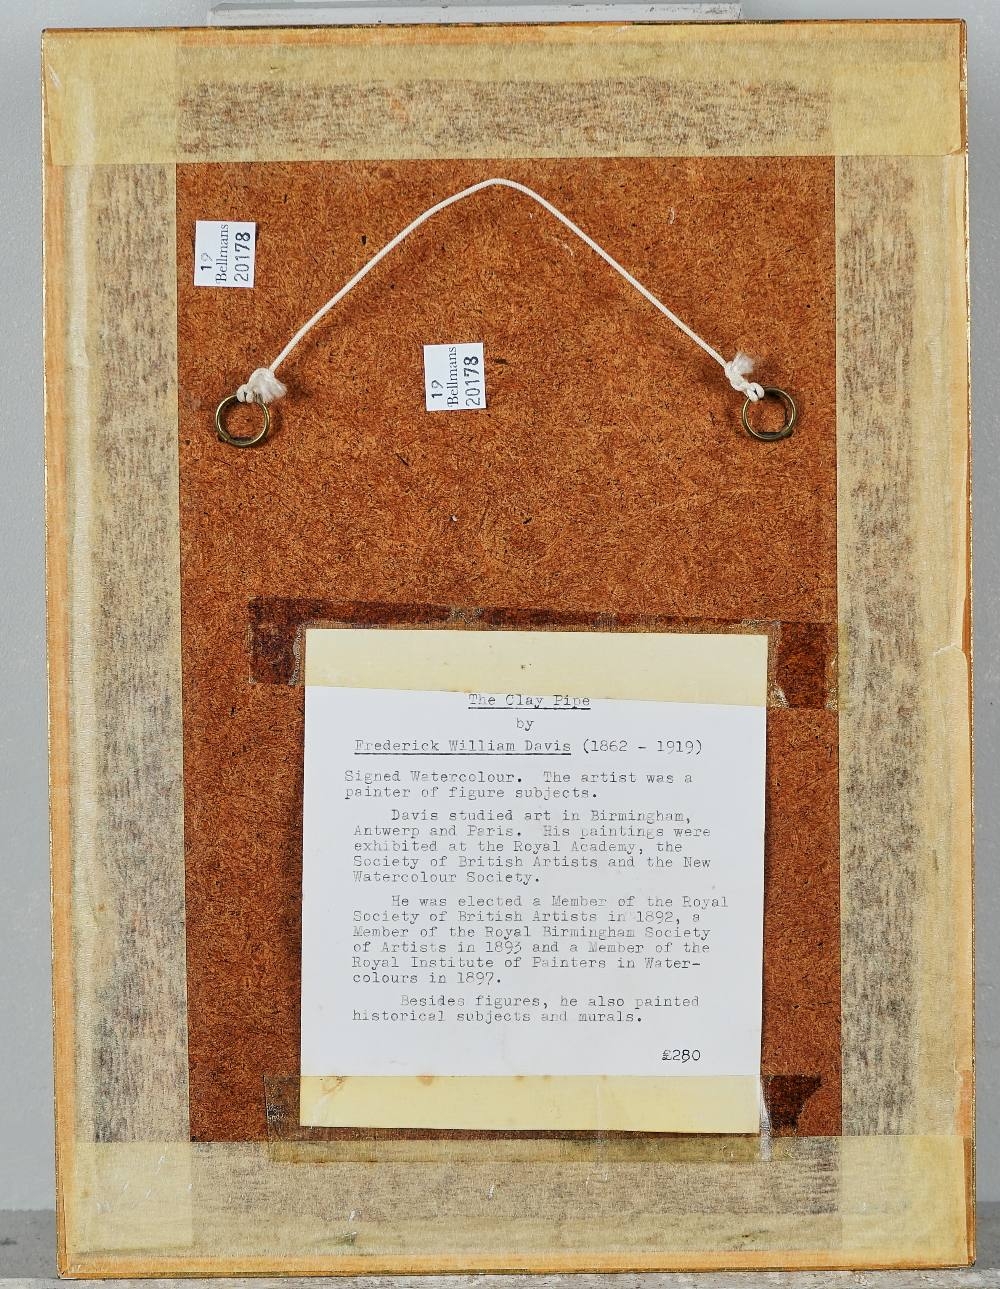 19
Bellmans
20178
19
Bellmans
20178
The Clay Pipe
by
Frederick William Davis (1862 - 1919)
Signed Watercolour. The artist was a
painter of figure subjects.
Davis studied art in Birmingham,
Antwerp and Paris. His paintings were
exhibited at the Royal Academy, the
Society of British Artists and the New
Watercolour Society.
He was elected a Member of the Royal
Society of British Artists in 1892, a
Member of the Royal Birmingham Society
of Artists in 1893 and a Member of the
Royal Institute of Painters in Water-
colours in 1897.
Besides figures, he also painted
historical subjects and murals.
£280